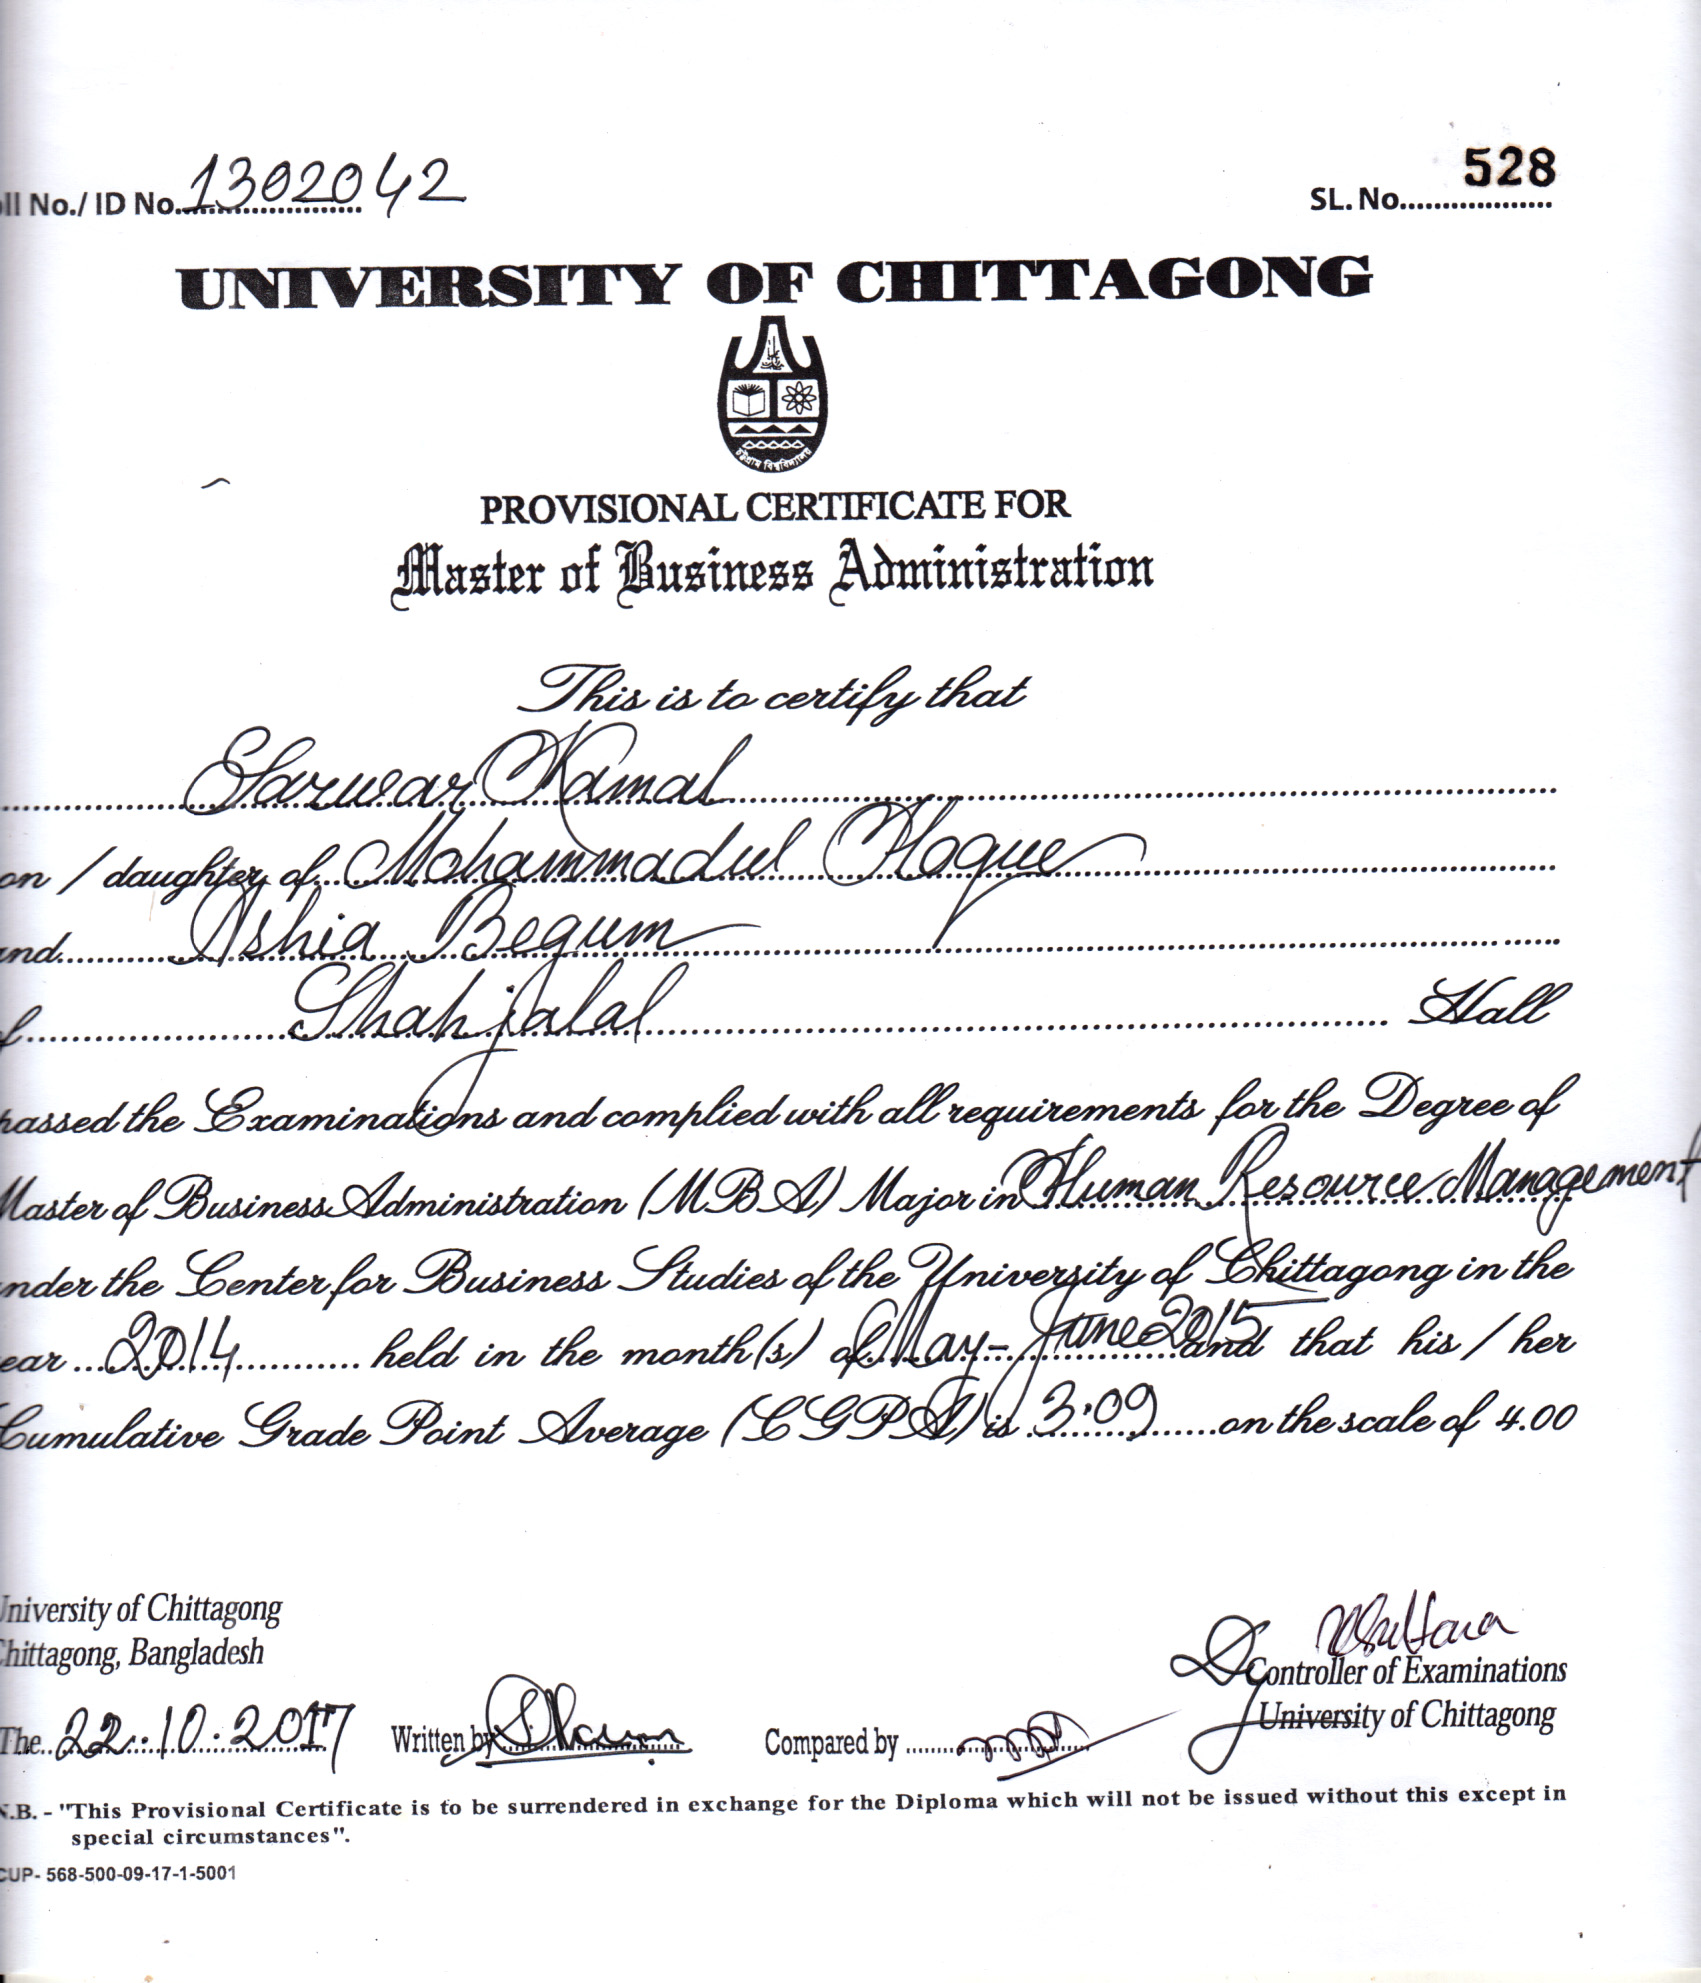 ll No./ ID No. 1302042
SL. No. 528
UNIVERSITY OF CHITTAGONG
PROVISIONAL CERTIFICATE FOR
Master of Business Administration
This is to certify that
Sarwar Kamal
on / daughter of Mohammadul Hoque
nd Ashia Begum
f Shahjalal Hall
passed the Examinations and complied with all requirements for the Degree of
Master of Business Administration (MBA) Major in Human Resource Management
nder the Center for Business Studies of the University of Chittagong in the
ear 2014 held in the month(s) of May-June 2015 and that his / her
Cumulative Grade Point Average (CGPA) is 3.09 on the scale of 4.00
University of Chittagong
Chittagong, Bangladesh
Controller of Examinations
University of Chittagong
The 22.10.2017 Written by Compared by
N.B. - "This Provisional Certificate is to be surrendered in exchange for the Diploma which will not be issued without this except in
special circumstances".
CUP- 568-500-09-17-1-5001